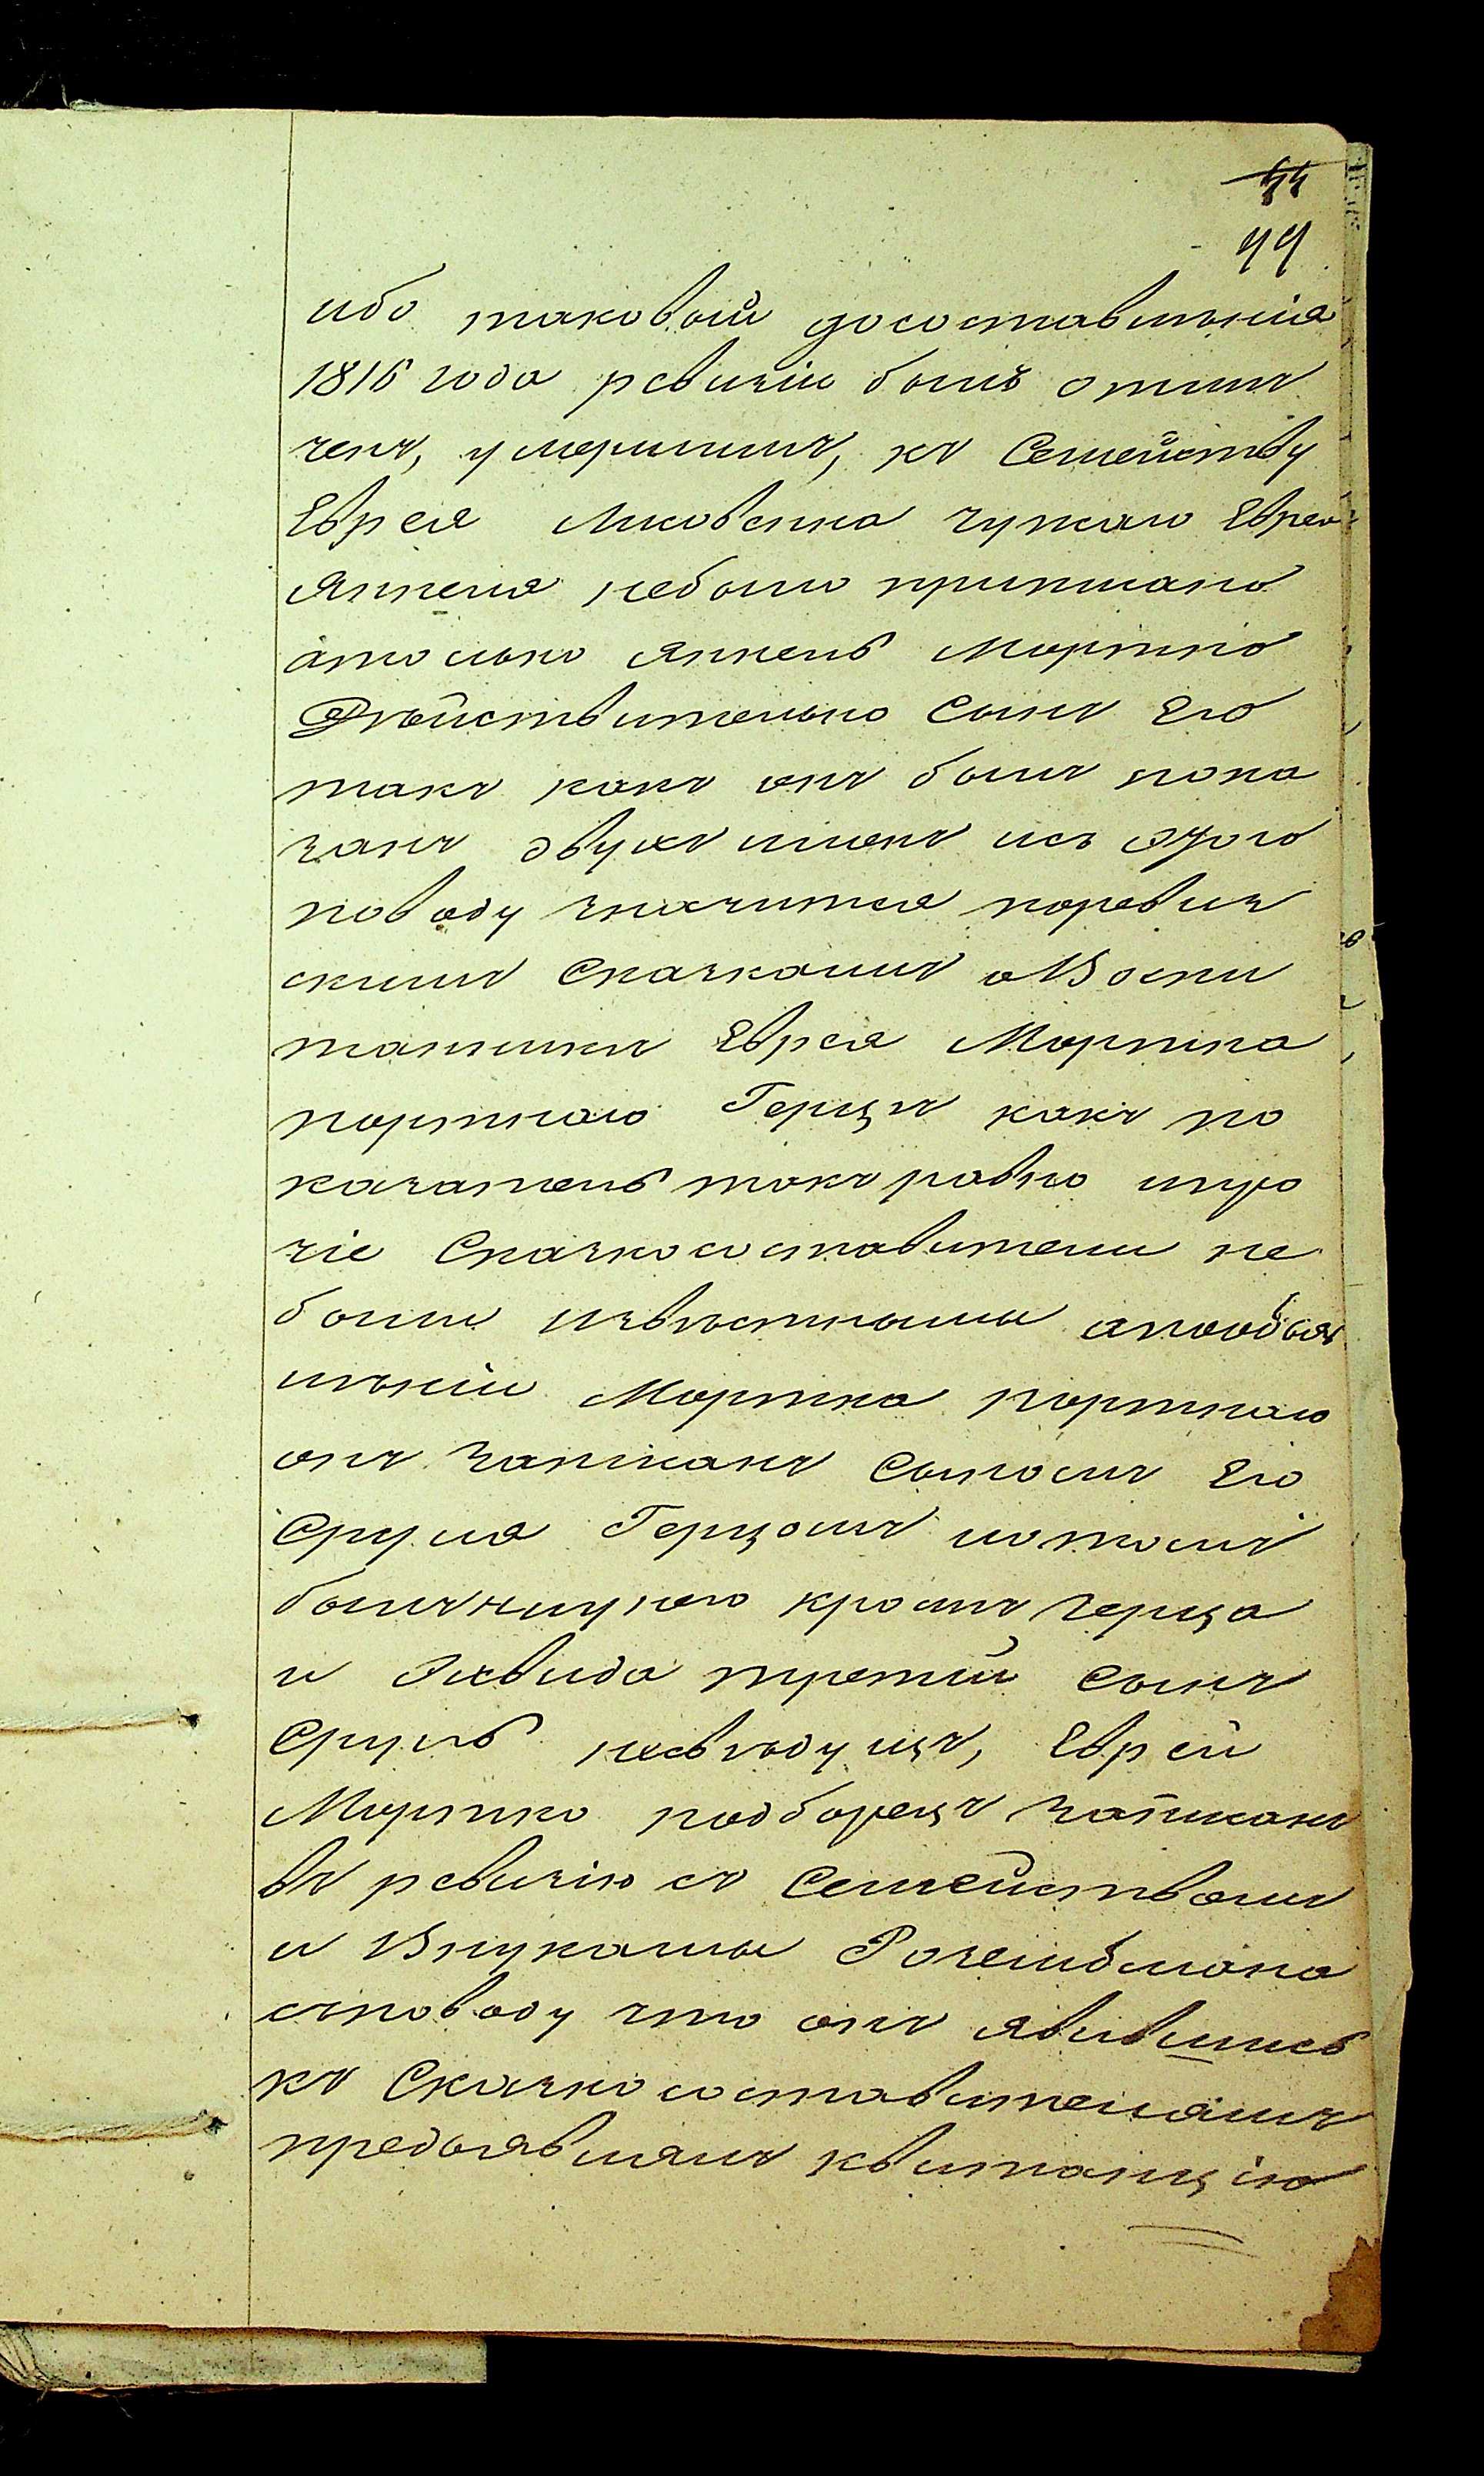 44
44
ибо таковый досоставленія
1816 года ревизіи былъ отли
ченъ, умершимъ, къ Семейству
Еврея Лисовенка чужаго Еврея
Янкеля небыло приписано
атолько Янкель Мортко
Дѣйствительно Сынъ Его
такъ какъ онъ былъ пока
занъ двухъ именъ исъ этого
поводу значится поревиз
скимъ Сказкамъ оВоспи
танники Еврея Мортка
портнаго Герцъ какъ по
казатель такъ равно ипро
чіе Сказкосоставители не
были извѣстными апообъяв
ленію Мортка портнаго
онъ записанъ Сыномъ Его
Сруля Герцомъ потомъ
былълиунего кромѣ герца
и Давида третій Сынъ
Сруль неввѣдущъ, Еврей
Мортко подборецъ записанъ
въ ревизію съ Семействомъ
и Внуками Розенблюмана
споводу что онъ явившись
къ Сказкосоставителямъ
предъявлялъ квитанцію